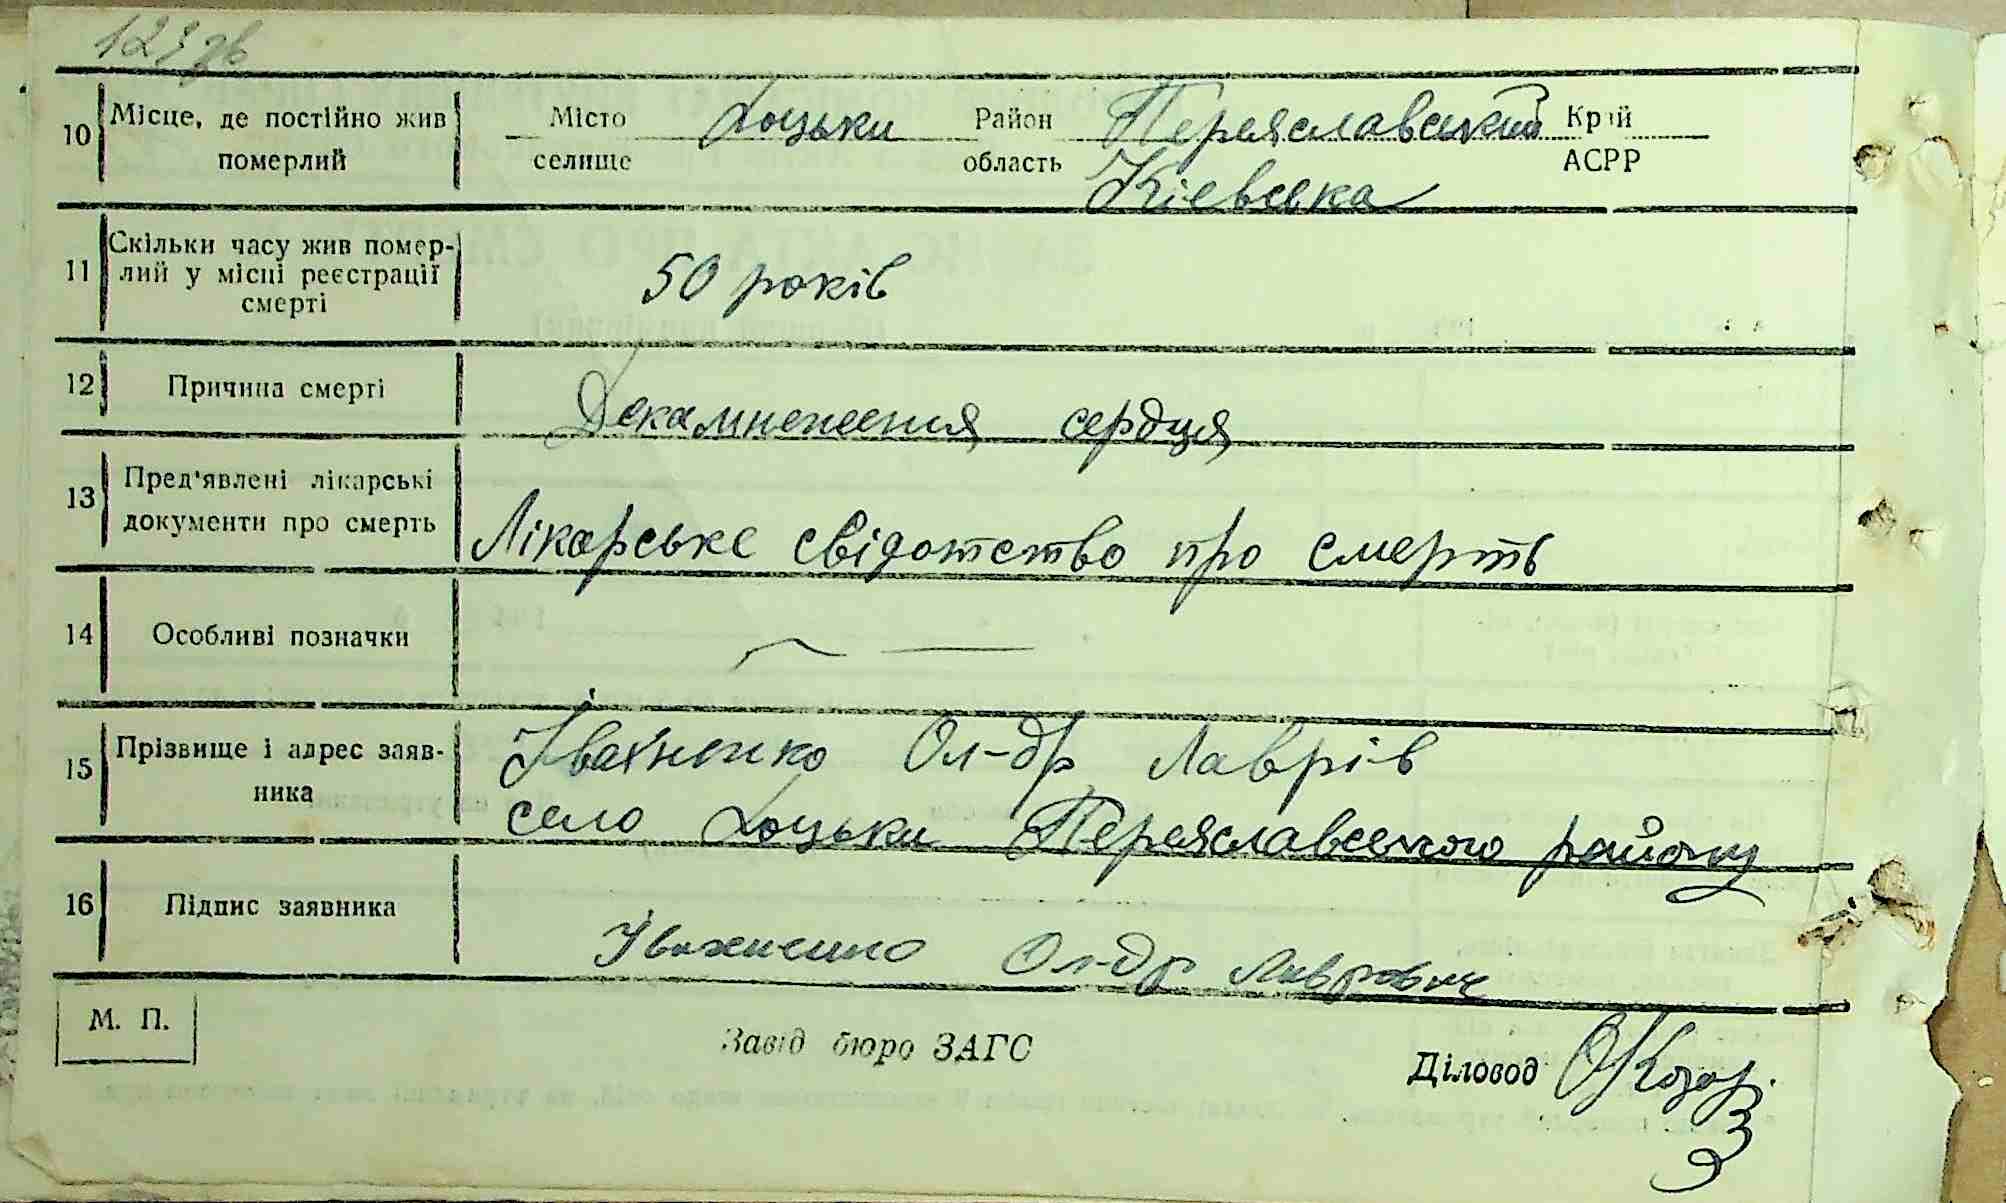 123 зв
10 Місце, де постійно жив померлий Місто селище Доцьки Район область Переяславський Край АСРР
Кіевська
11 Скільки часу жив померлий у місці реєстрації смерті 50 років
12 Причина смерті Декампенсения сердця
13 Пред'явлені лікарські документи про смерть Лікарське свідотство про смерть
14 Особливі позначки — —
15 Прізвище і адрес заявника Івахненко Ол-др Лаврів
село Доцьки Переяславського району
16 Підпис заявника Івахненко Ол-др Лаврович
М. П. Завід бюро ЗАГС Діловод